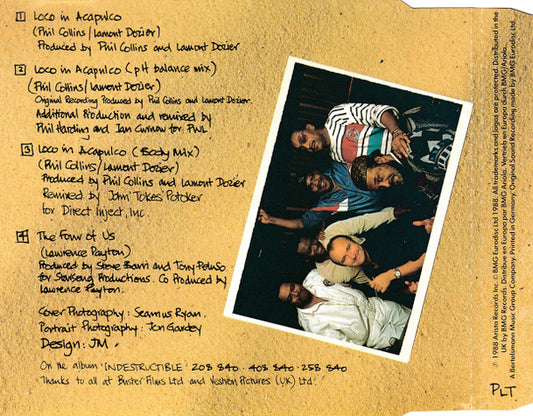 1 Loco in Acapulco
(Phil Collins/Lamont Dozier)
Produced by Phil Collins and Lamont Dozier
2 Loco in Acapulco (pH balance mix)
(Phil Collins/Lamont Dozier)
Original Recording Produced by Phil Collins and Lamont Dozier.
Additional Production and remixed by
Phil Harding and Ian Curnow for PWL
3 Loco in Acapulco (Body Mix)
(Phil Collins/Lamont Dozier)
Produced by Phil Collins and Lamont Dozier
Remixed by John 'Tokes' Potoker
for Direct Inject, Inc.
4 The Four of Us
(Lawrence Payton)
Produced by Steve Barri and Tony Peluso
for Productions. Co Produced by
Lawrence Payton.
Cover Photography: Seamus Ryan.
Portrait Photography: Jon
Design: JM.
On the album 'INDESTRUCTIBLE' 208 840 · 408 840 · 258 840
Thanks to all at Buster Films Ltd and Pictures (UK) Ltd.
℗ 1988 Arista Records Inc. © BMG Eurodisc Ltd 1988. All trademarks and logos are protected. Distributed in the
UK by BMG Records. Distribué en Europe par BMG Ariola. Vertrieb en Europa durch BMG Ariola.
A Bertelsmann Music Group Company. Printed in Germany. Original Sound Recording made by BMG Eurodisc Ltd.
PLT